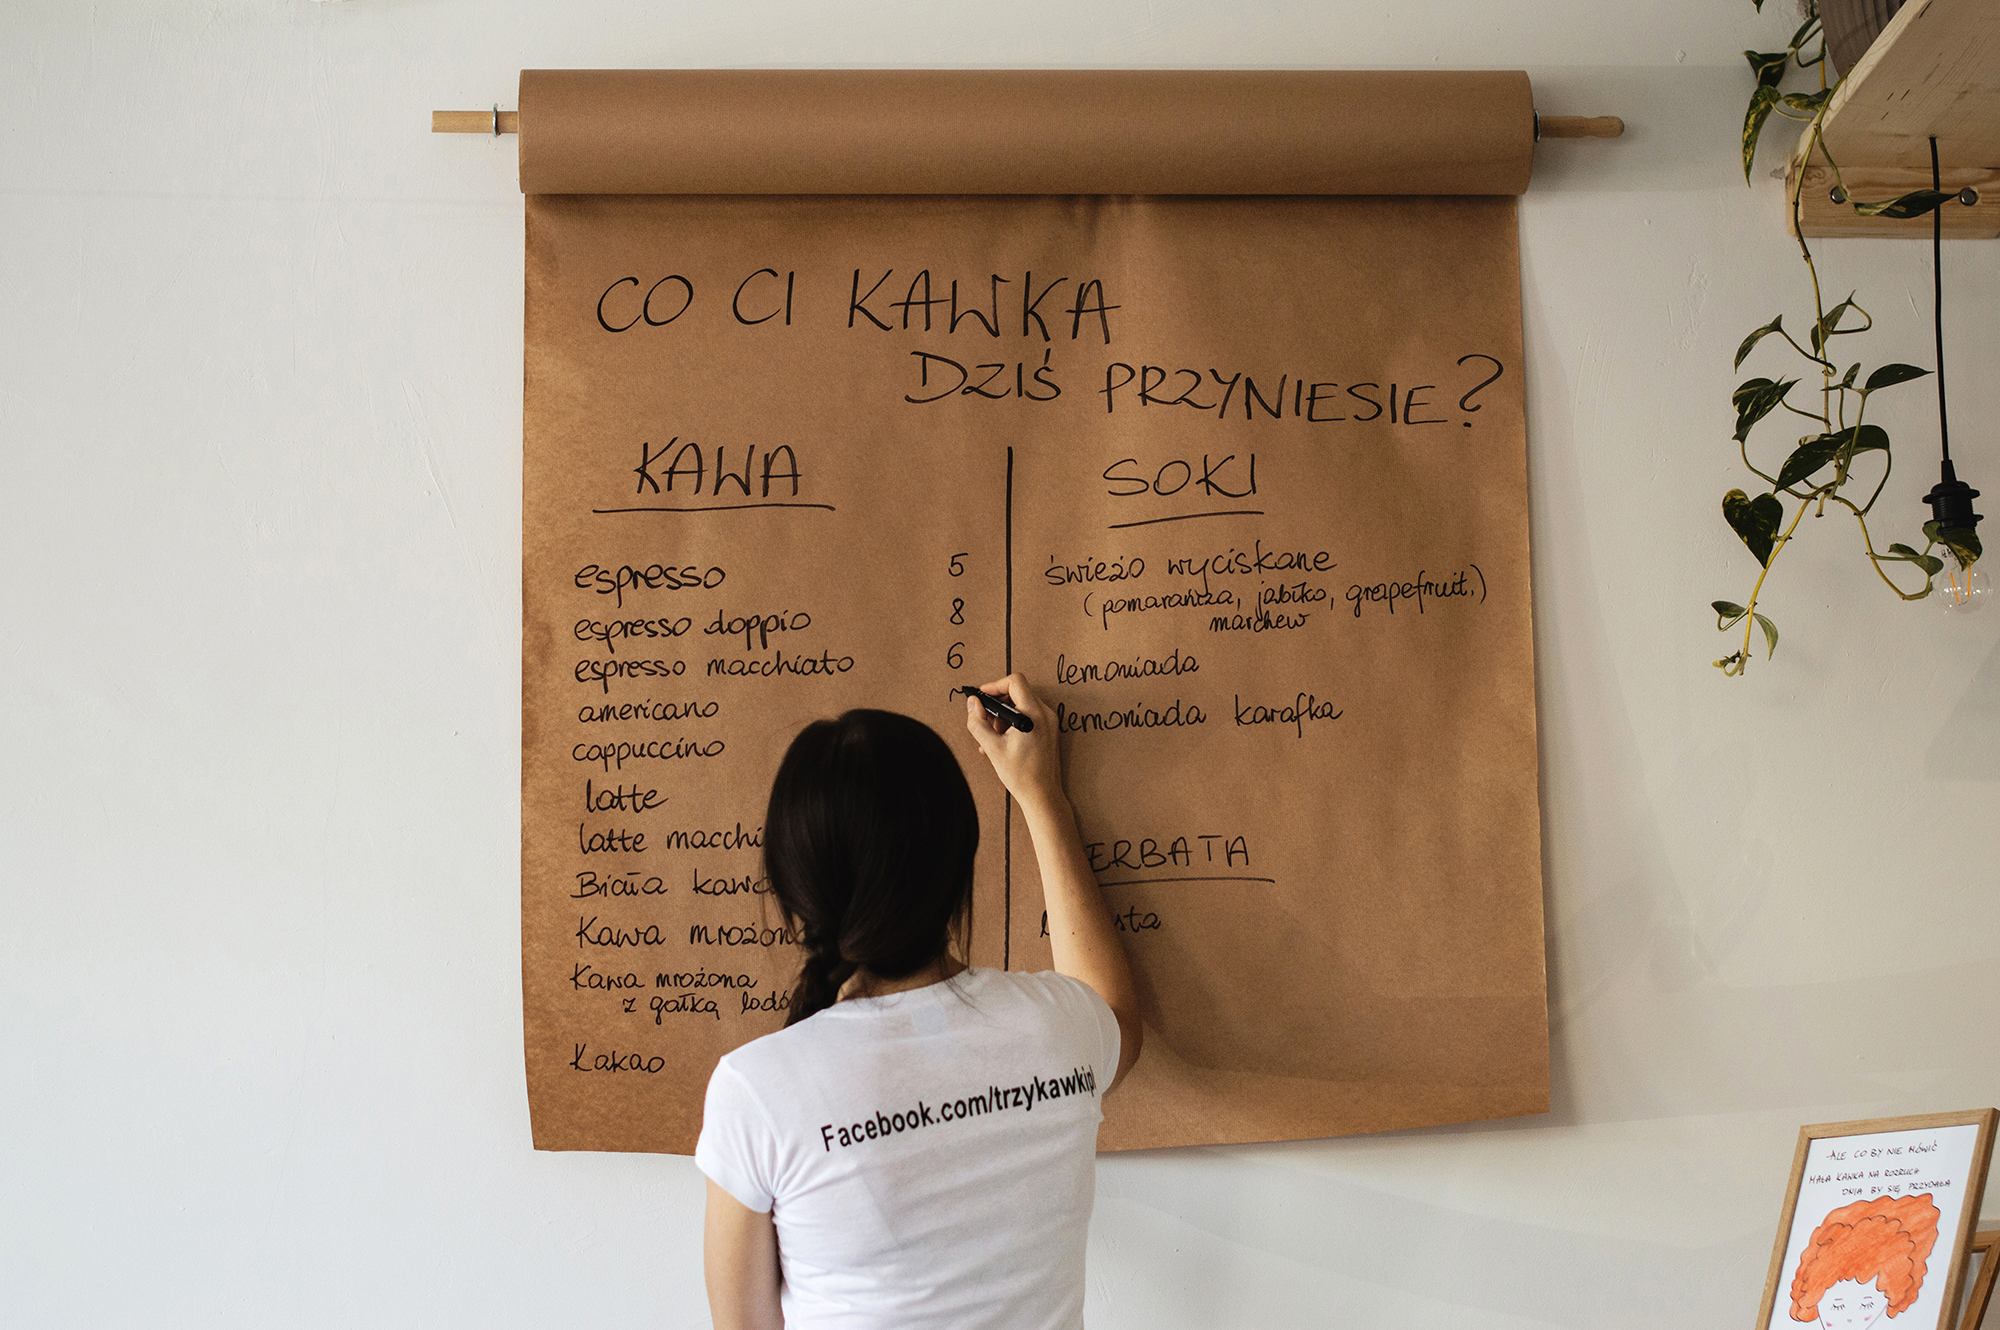 CO CI KAWKA
DZIŚ PRZYNIESIE?
KAWA
espresso 5
espresso doppio 8
espresso macchiato 6
americano
cappuccino
latte
latte macchi
Biała kawa
Kawa mrożona
Kawa mrożona
z gałką lodó
Kakao
SOKI
świeżo wyciskane
(pomarańcza, jabłko, grapefruit,)
marchew
lemoniada
lemoniada karafka
ERBATA
Facebook.com/trzykawkipl
-ALE CO BY NIE MÓWIĆ
MAŁA KAWKA NA ROZRUCH
DNIA BY SIĘ PRZYDAŁA